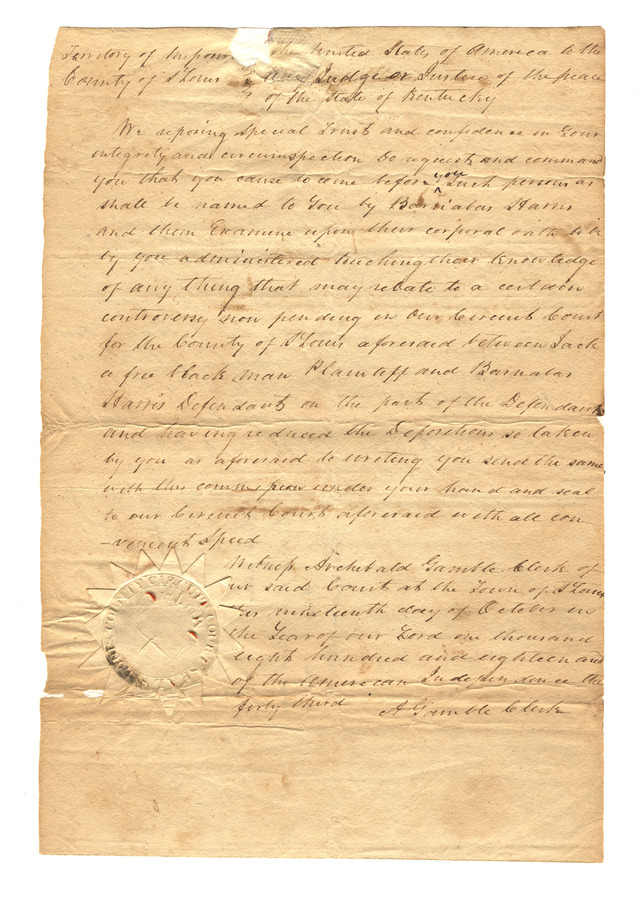 Territory of Missouri The United States of America to the
County of St Louis any Judge or Justice of the peace
of the State of Kentucky
We reposing special Trust and confidence in Your
integrity and circumspection do request and command
you that you cause to come before you Such persons as
shall be named to You by Barnabas Harris
and them Examine upon their corporal oath to be
by you administered touching their knowledge
of any thing that may relate to a certain
controversy now pending in our Circuit Court
for the County of St Louis aforesaid between Jack
a free black man Plaintiff and Barnabas
Harris Defendant on the part of the Defendant
and having reduced the Depositions so taken
by you as aforesaid to writing you send the same
with this commission under your hand and seal
to our Circuit Court aforesaid with all con
-venient Speed
Witness Archibald Gamble Clerk of
our said Court at the Town of St Louis
this nineteenth day of October in
the Year of our Lord one thousand
eight hundred and eighteen and
of the American Independence the
forty third
A Gamble Clerk
ST LOUIS COUNTY CIRCUIT COURT SEAL